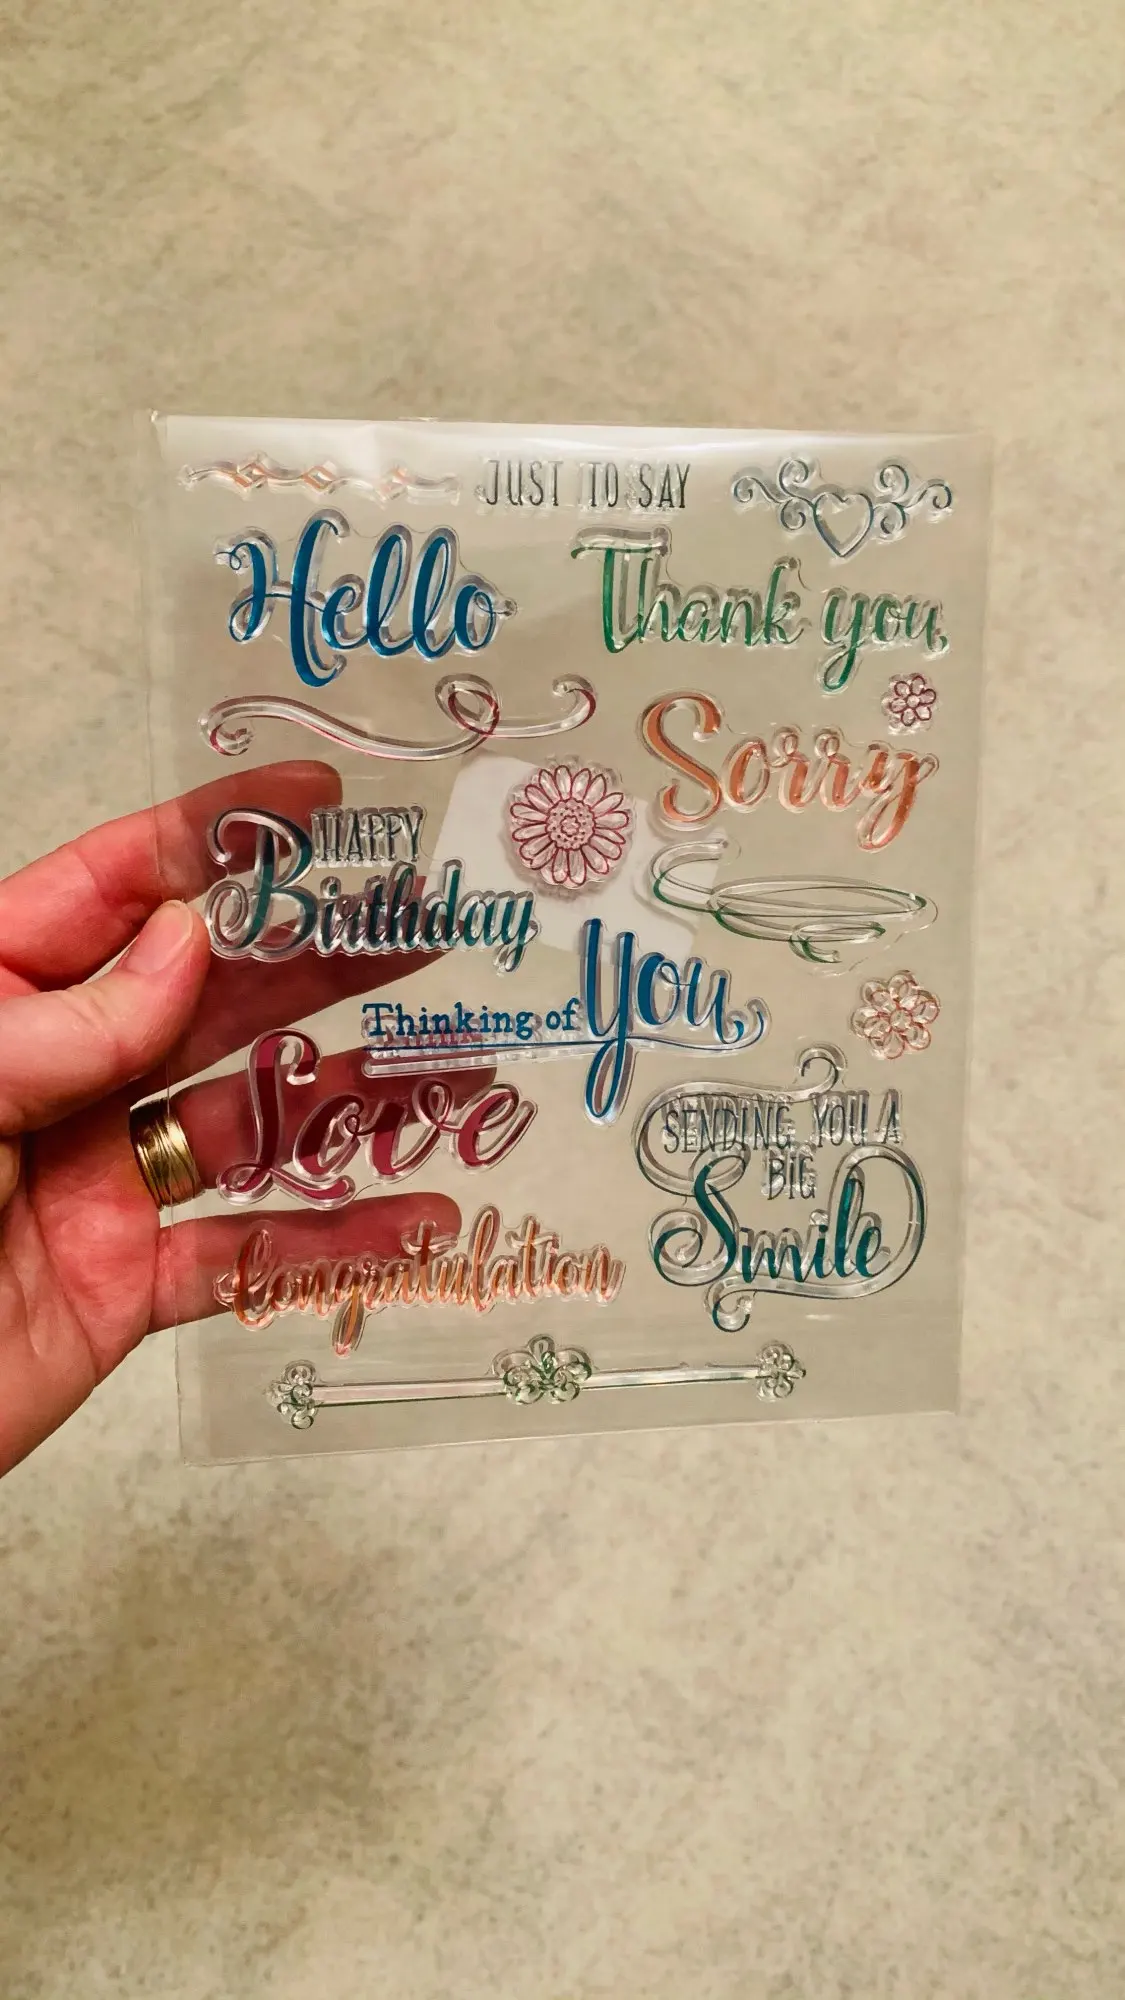 JUST TO SAY
Hello
Thank you
Sorry
HAPPY
Birthday
Thinking of You
Love
SENDING YOU A
BIG
Smile
Congratulation